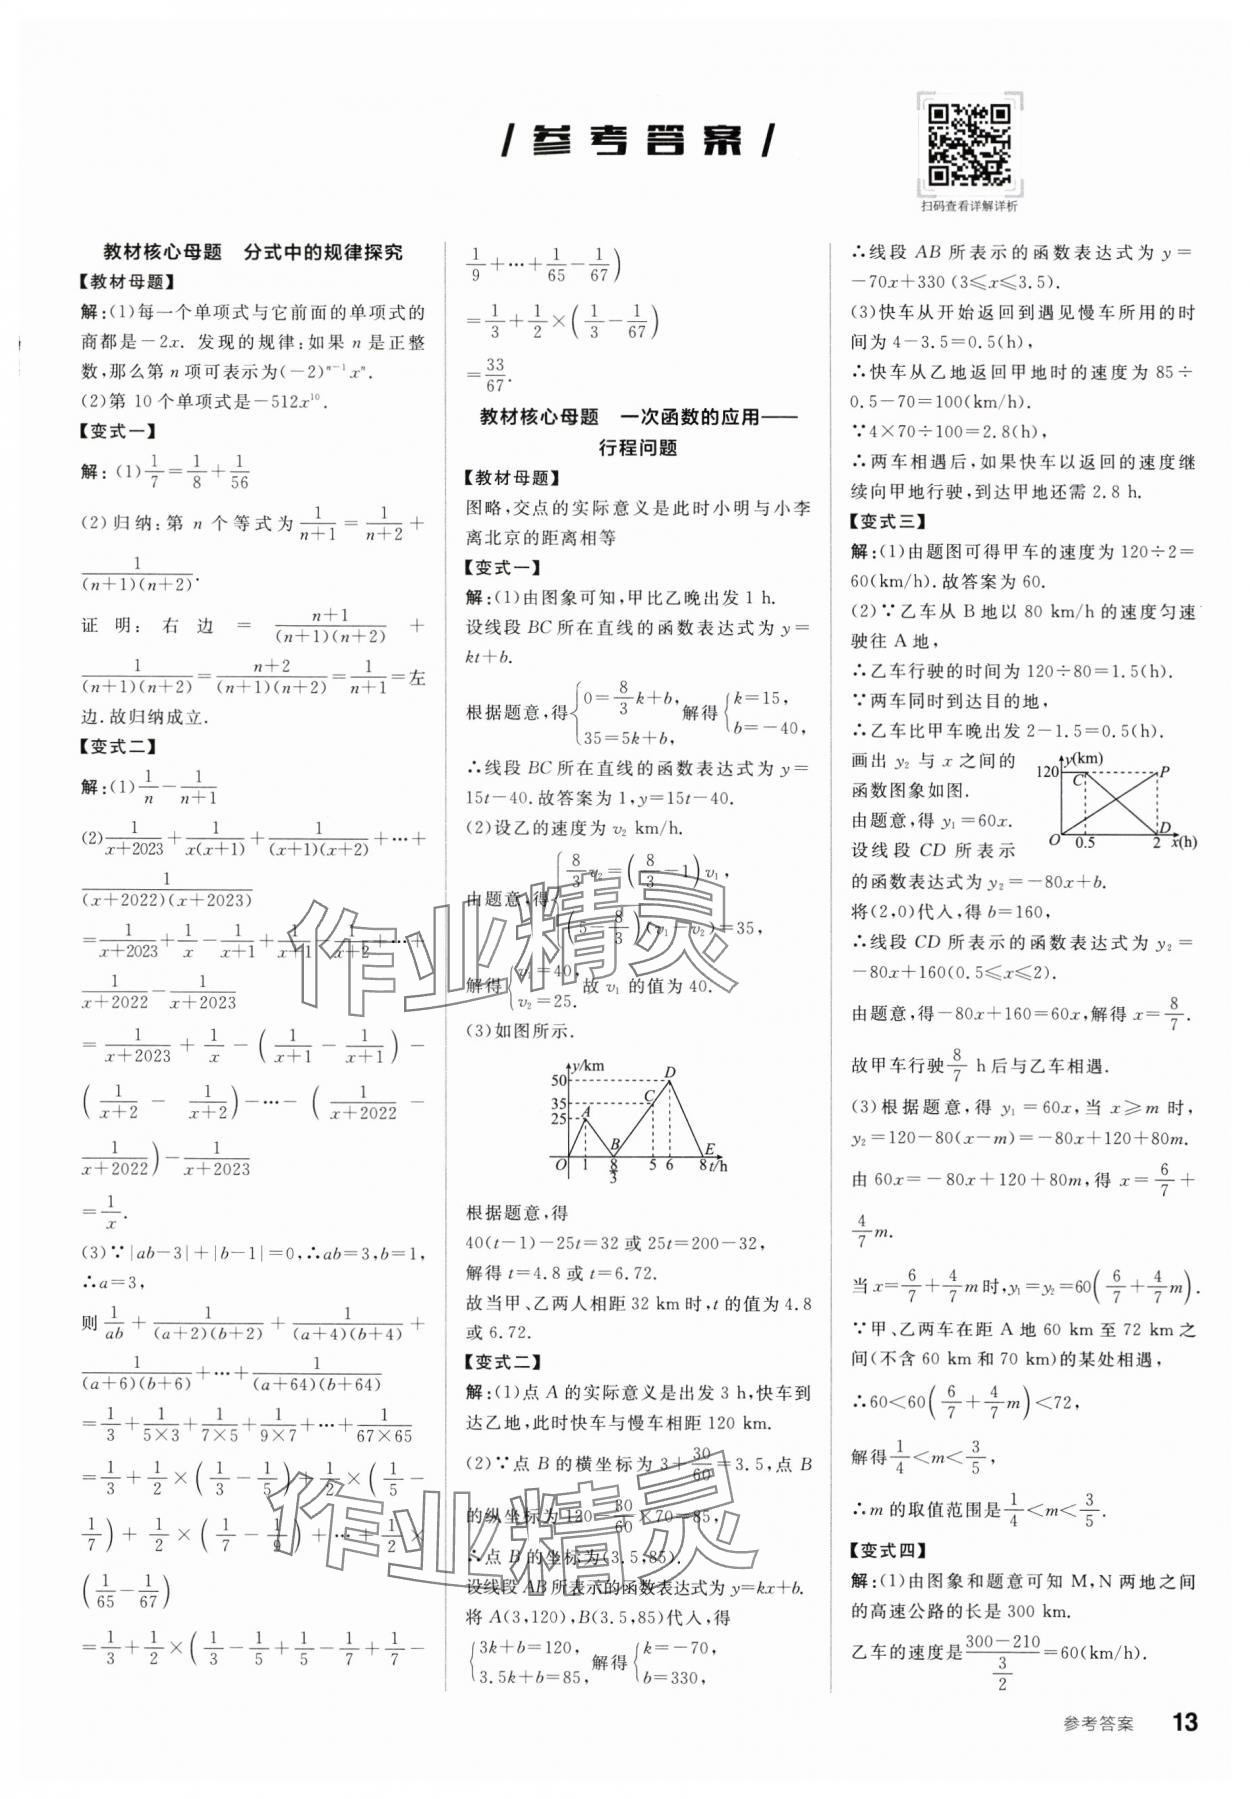 参考答案
扫码查看详解详析
教材核心母题　分式中的规律探究
【教材母题】
解:(1)每一个单项式与它前面的单项式的
商都是－2x. 发现的规律:如果 n 是正整
数,那么第 n 项可表示为(－2)ⁿ⁻¹xⁿ.
(2)第 10 个单项式是－512x¹⁰.
【变式一】
解:(1)1/7=1/8+1/56
(2)归纳:第 n 个等式为1/(n+1)=1/(n+2)+
1/((n+1)(n+2)).
证明:右边=(n+1)/((n+1)(n+2))+
1/((n+1)(n+2))=(n+2)/((n+1)(n+2))=1/(n+1)=左
边.故归纳成立.
【变式二】
解:(1)1/n－1/(n+1)
(2)1/(x+2023)+1/(x(x+1))+1/((x+1)(x+2))+…+
1/((x+2022)(x+2023))
=1/(x+2023)+1/x－1/(x+1)+1/(x+1)－1/(x+2)+…+
1/(x+2022)－1/(x+2023)
=1/(x+2023)+1/x－(1/(x+1)－1/(x+1))－
(1/(x+2)－1/(x+2))－…－(1/(x+2022)－
1/(x+2022))－1/(x+2023)
=1/x.
(3)∵|ab－3|+|b－1|=0,∴ab=3,b=1,
∴a=3,
则1/ab+1/((a+2)(b+2))+1/((a+4)(b+4))+
1/((a+6)(b+6))+…+1/((a+64)(b+64))
=1/3+1/(5×3)+1/(7×5)+1/(9×7)+…+1/(67×65)
=1/3+1/2×(1/3－1/5)+1/2×(1/5－
1/7)+1/2×(1/7－1/9)+…+1/2×
(1/65－1/67)
=1/3+1/2×(1/3－1/5+1/5－1/7+1/7－
1/9+…+1/65－1/67)
=1/3+1/2×(1/3－1/67)
=33/67.
教材核心母题　一次函数的应用——
行程问题
【教材母题】
图略,交点的实际意义是此时小明与小李
离北京的距离相等
【变式一】
解:(1)由图象可知,甲比乙晚出发 1 h.
设线段 BC 所在直线的函数表达式为 y=
kt+b.
根据题意,得{0=8/3k+b, 35=5k+b, 解得{k=15, b=－40,
∴线段 BC 所在直线的函数表达式为 y=
15t－40.故答案为 1,y=15t－40.
(2)设乙的速度为 v₂ km/h.
由题意,得{8/3v₂=(8/3－1)v₁, (5－8/3)(v₁－v₂)=35,
解得{v₁=40, v₂=25. 故 v₁ 的值为 40.
(3)如图所示.
y/km
50
35
25
A
B
C
D
E
O 1 8/3 5 6 8 t/h
根据题意,得
40(t－1)－25t=32 或 25t=200－32,
解得 t=4.8 或 t=6.72.
故当甲、乙两人相距 32 km 时,t 的值为 4.8
或 6.72.
【变式二】
解:(1)点 A 的实际意义是出发 3 h,快车到
达乙地,此时快车与慢车相距 120 km.
(2)∵点 B 的横坐标为 3+30/60=3.5,点 B
的纵坐标为 120－30/60×70=85,
∴点 B 的坐标为(3.5,85).
设线段 AB 所表示的函数表达式为 y=kx+b.
将 A(3,120),B(3.5,85)代人,得
{3k+b=120, 3.5k+b=85, 解得{k=－70, b=330,
∴线段 AB 所表示的函数表达式为 y=
－70x+330(3≤x≤3.5).
(3)快车从开始返回到遇见慢车所用的时
间为 4－3.5=0.5(h),
∴快车从乙地返回甲地时的速度为 85÷
0.5－70=100(km/h).
∵4×70÷100=2.8(h),
∴两车相遇后,如果快车以返回的速度继
续向甲地行驶,到达甲地还需 2.8 h.
【变式三】
解:(1)由题图可得甲车的速度为 120÷2=
60(km/h).故答案为 60.
(2)∵乙车从 B 地以 80 km/h 的速度匀速
驶往 A 地,
∴乙车行驶的时间为 120÷80=1.5(h).
∵两车同时到达目的地,
∴乙车比甲车晚出发 2－1.5=0.5(h).
画出 y₂ 与 x 之间的
函数图象如图.
由题意,得 y₁=60x.
设线段 CD 所表示
y(km)
120
C
P
D
O 0.5 2 x(h)
的函数表达式为 y₂=－80x+b.
将(2,0)代人,得 b=160,
∴线段 CD 所表示的函数表达式为 y₂=
－80x+160(0.5≤x≤2).
由题意,得－80x+160=60x,解得 x=8/7.
故甲车行驶8/7 h 后与乙车相遇.
(3)根据题意,得 y₁=60x,当 x≥m 时,
y₂=120－80(x－m)=－80x+120+80m.
由 60x=－80x+120+80m,得 x=6/7+
4/7m.
当 x=6/7+4/7m时,y₁=y₂=60(6/7+4/7m).
∵甲、乙两车在距 A 地 60 km 至 72 km 之
间(不含 60 km 和 70 km)的某处相遇,
∴60<60(6/7+4/7m)<72,
解得1/4<m<3/5,
∴m 的取值范围是1/4<m<3/5.
【变式四】
解:(1)由图象和题意可知 M,N 两地之间
的高速公路的长是 300 km.
乙车的速度是(300－210)/(3/2)=60(km/h).
参考答案　13
作业精灵
作业精灵